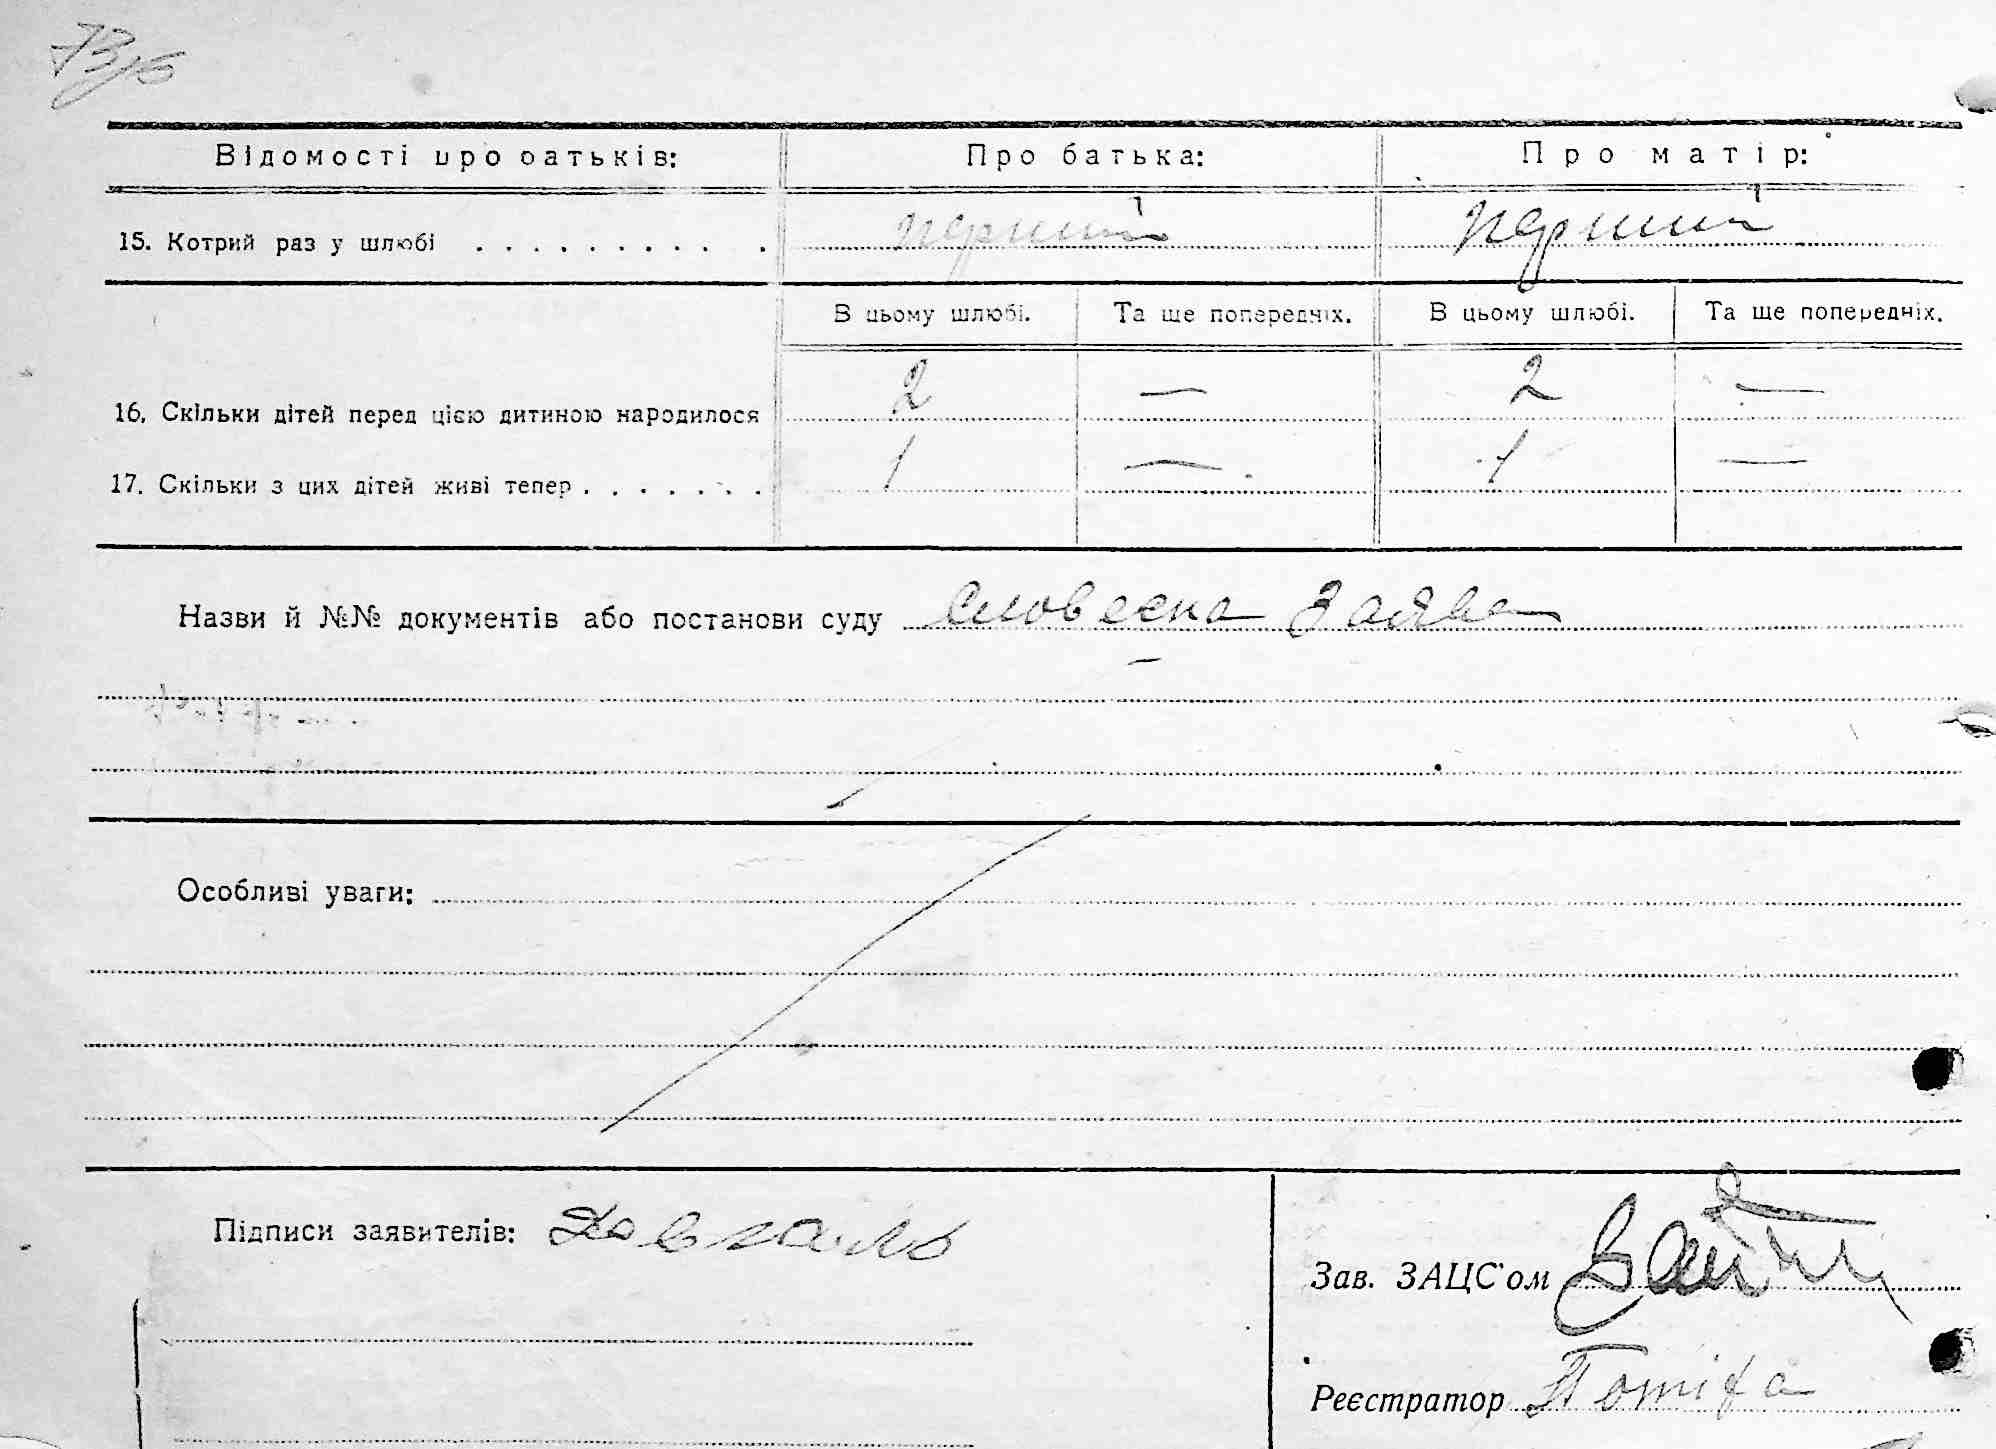 Відомості про батьків: Про батька: Про матір:
15. Котрий раз у шлюбі . . . . . . . . . . . перший перший
В цьому шлюбі. Та ще попередніх. В цьому шлюбі. Та ще попередніх.
16. Скільки дітей перед цією дитиною народилося 2 — 2 —
17. Скільки з цих дітей живі тепер . . . . . . . 1 — 1 —
Назви й №№ документів або постанови суду словесна заява
Особливі уваги:
Підписи заявителів: Довгаль
Зав. ЗАЦС'ом
Реєстратор